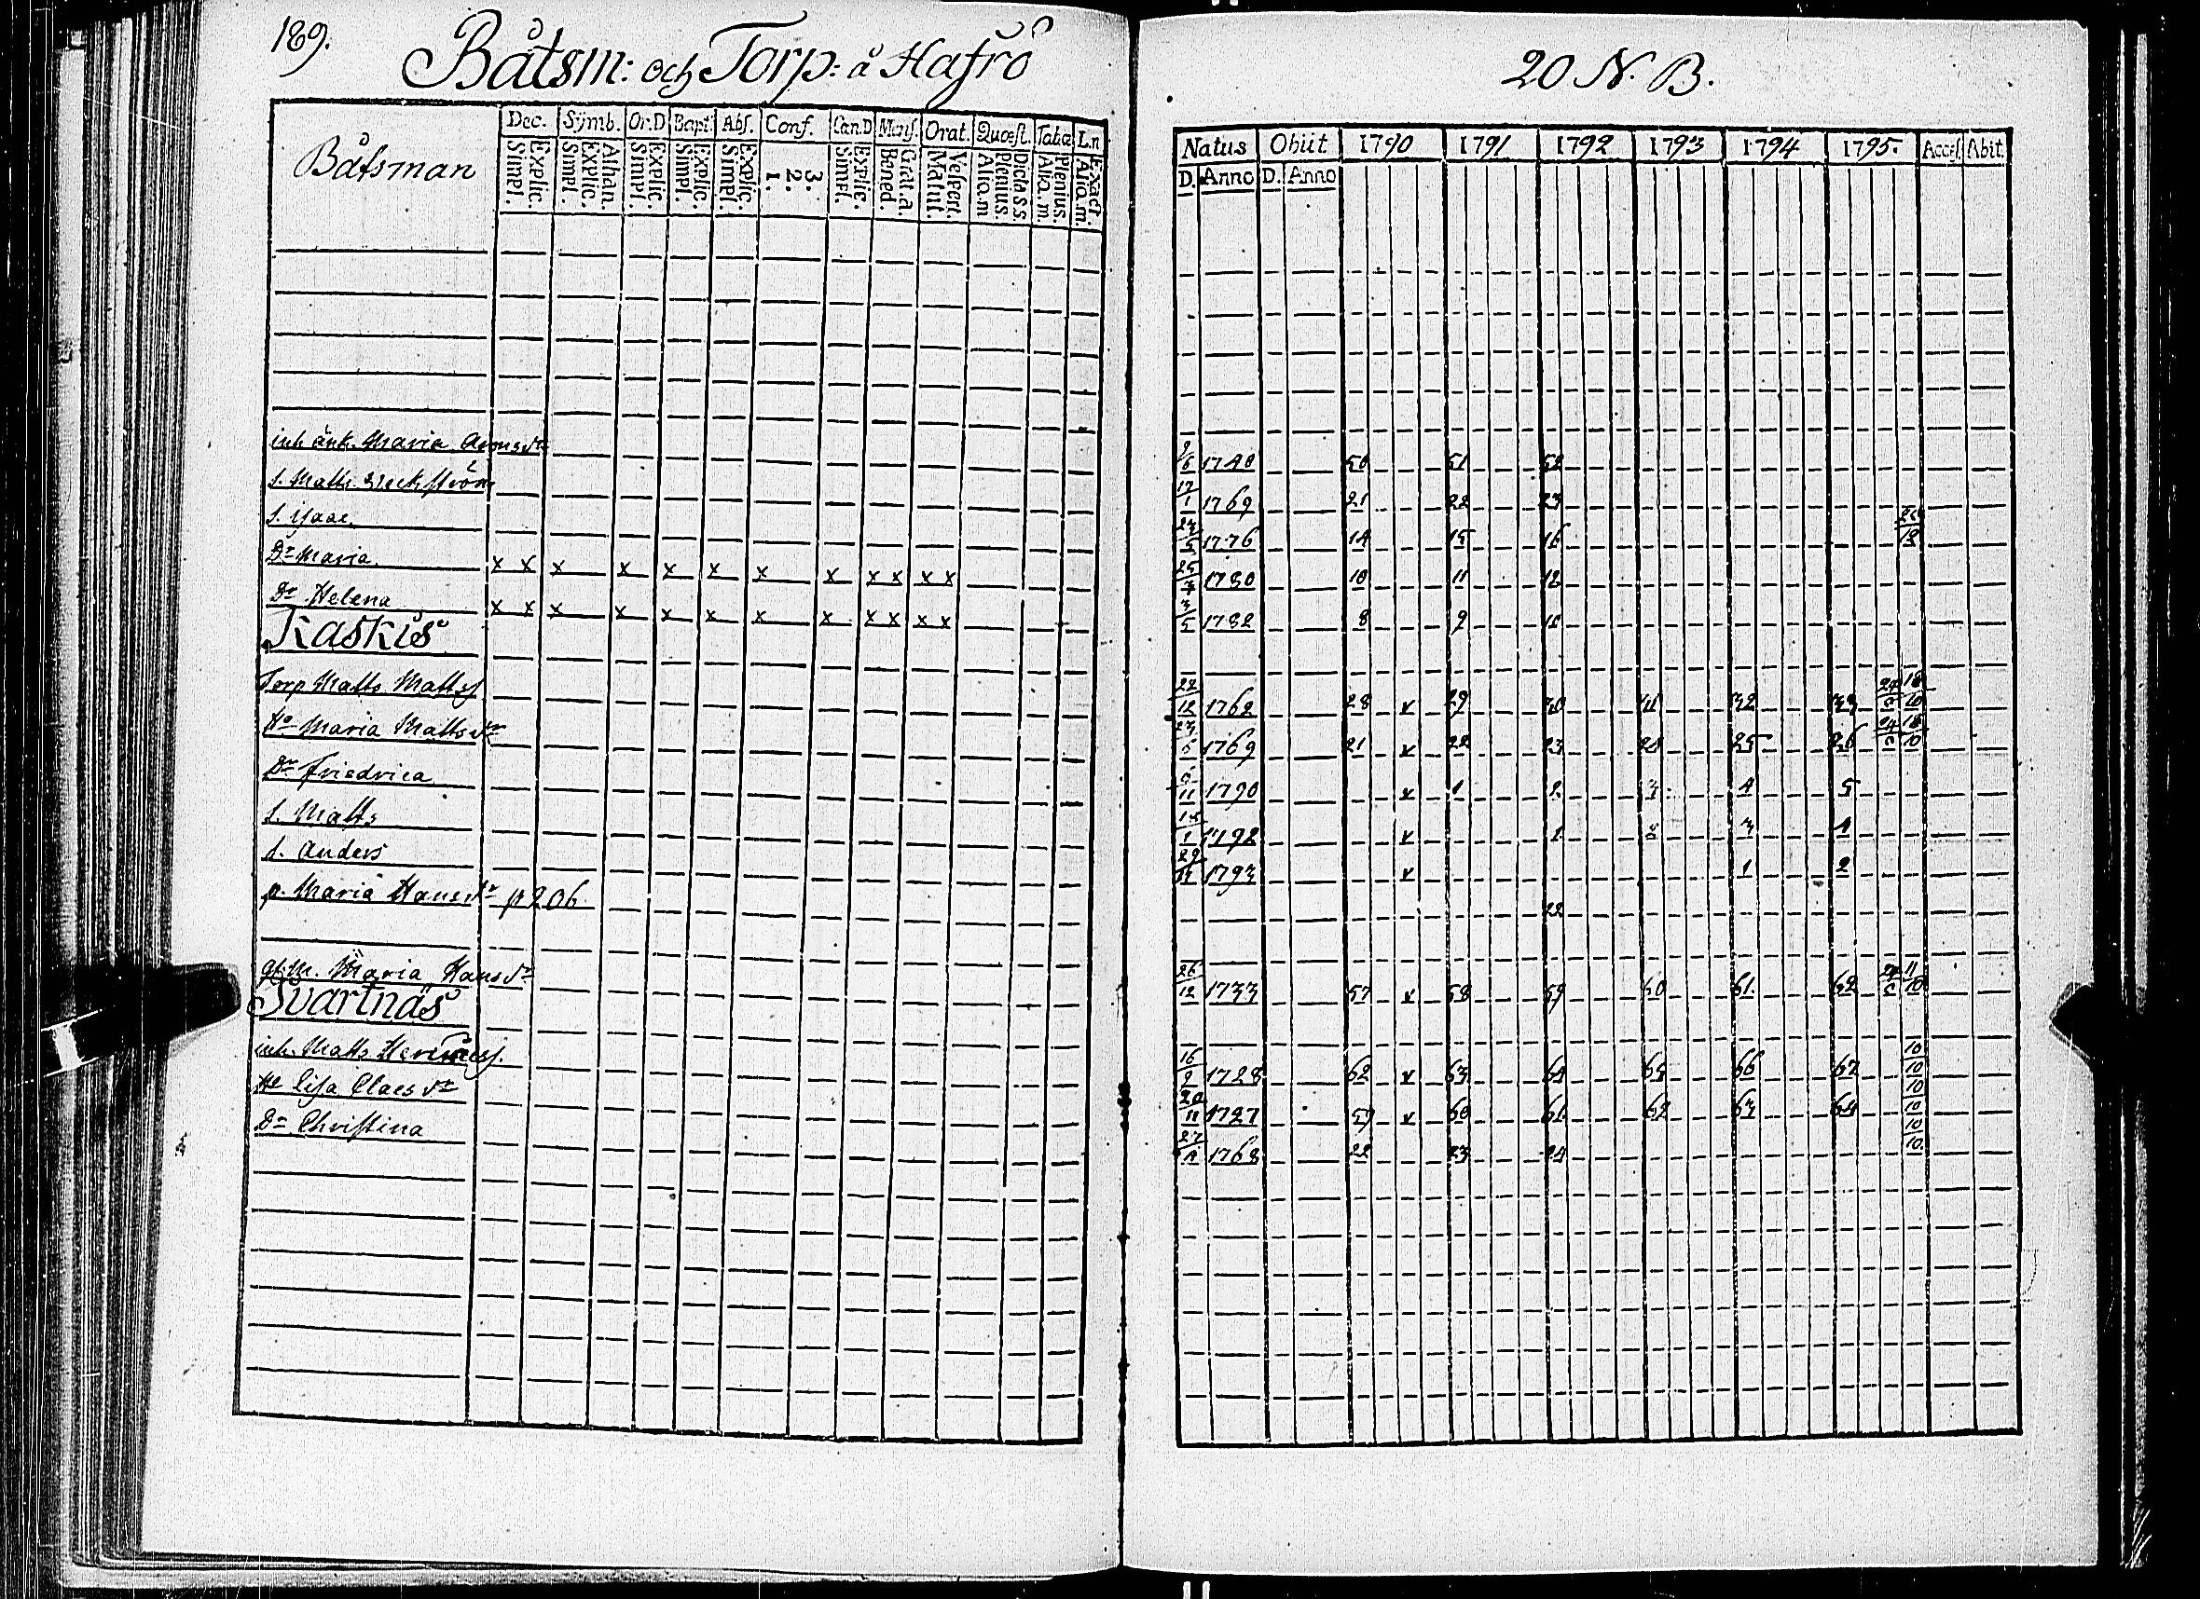 189.
Båtsm: och Torp: å Hafrö
Båtsman
Dec. Symb. Or.D Bapt. Abs. Conf. Can.D Mens. Orat. Quæst. Tabæ L.n
Simpl. Explic. Simpl. Explic. Athan. Simpl. Explic. Simpl. Explic. Simpl. Explic. 1. 2. 3. Simpl. Explic. Bened. Grat.a. Matut. Vespert. Alio.m Plenius. Dicta s.s. Alia.m. Plenius. Alio.m. Exact.
inh. änk. Maria
s. Matts
s. Isaac
Dr Maria x x x x x x x x x x x x
Dr Helena x x x x x x x x x x x x
Kaskis
Torp Matts Mattss
Ho Maria Mattsdr
Dr Friedrica
s. Matts
s. Anders
p. Maria Hansdr p 206.
Maria Hansdr
Svartnäs
inh. Matts
Lisa Claesdr
Dr Christina
20 N. B.
Natus Obiit 1790 1791 1792 1793 1794 1795. Acces Abit
D. Anno D. Anno
1740 50 51 52
17/1 1769 21 22 23
1776 14 15 16
1780 10 11 12
3/5 1782 8 9 10
22/12 1762 28 x 29 30 31 32 33
1769 21 x 22 23 24 25 26
1790 x 1 2 3 4 5
1792 x 1 2 3 4
1793 x 1 2
22
26/12 1733 57 x 58 59 60 61 62
16/9 1728 62 x 63 64 65 66 67 10/10
20/11 1727 59 x 60 61 62 63 64 10/10
1768 22 23 24 10/10